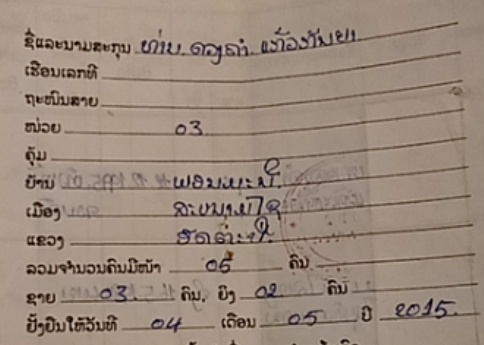 ຊື່ແລະນາມສະກຸນ ທ່ານ ດວງຄຳ ແກ້ວກັນຍາ
ເຮືອນເລກທີ
ຖະໜົນສາຍ
ໜ່ວຍ 03
ຄຸ້ມ
ບ້ານ ພອນມະນີ
ເມືອງ ສະໜາມໄຊ
ແຂວງ ອັດຕະປື
ລວມຈຳນວນຄົນມີໜ້າ 05 ຄົນ
ຊາຍ 03. ຄົນ, ຍິງ 02 ຄົນ
ຢັ້ງຢືນໃຫ້ວັນທີ 04 ເດືອນ 05 ປີ 2015.